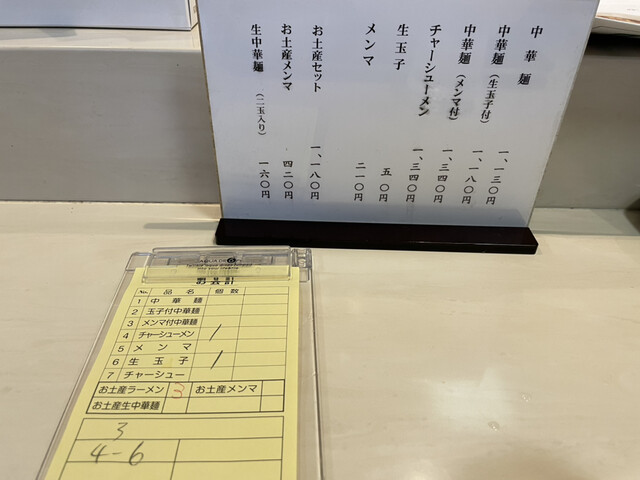 中華麺 一、一三〇円
中華麺(生玉子付) 一、一八〇円
中華麺(メンマ付) 一、三四〇円
チャーシューメン 一、三四〇円
生玉子 五〇円
メンマ 二一〇円
お土産セット 一、一八〇円
お土産メンマ 四二〇円
生中華麺(二玉入り) 一六〇円
お会計
No. 品名 個数
1 中華麺
2 玉子付中華麺
3 メンマ付中華麺
4 チャーシューメン /
5 メンマ
6 生玉子 /
7 チャーシュー
お土産ラーメン 3 お土産メンマ
お土産生中華麺
3
4-6